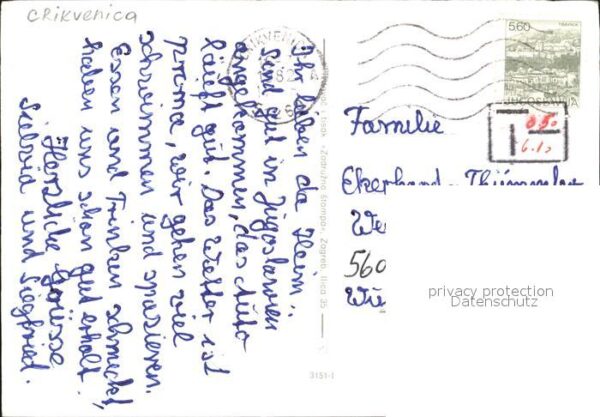 CRikvenica
Ihr Lieben da Heim!
Sind gut in Jugoslawien
angekommen, das Auto
läuft gut. Das Wetter ist
prima, wir gehen viel
schwimmen und spazieren.
Essen und Trinken schmeckt,
haben uns schon gut erholt.
Herzliche Grüsse
und Siegfried.
CRIKVENICA
5,60
TRAVNIK
JUGOSLAVIJA
T
0,50
6.10
Familie
Ekerhard
We
560
Wü
privacy protection
Datenschutz
»Zadružna štampa«, Zagreb, Ilica 35
3151-1